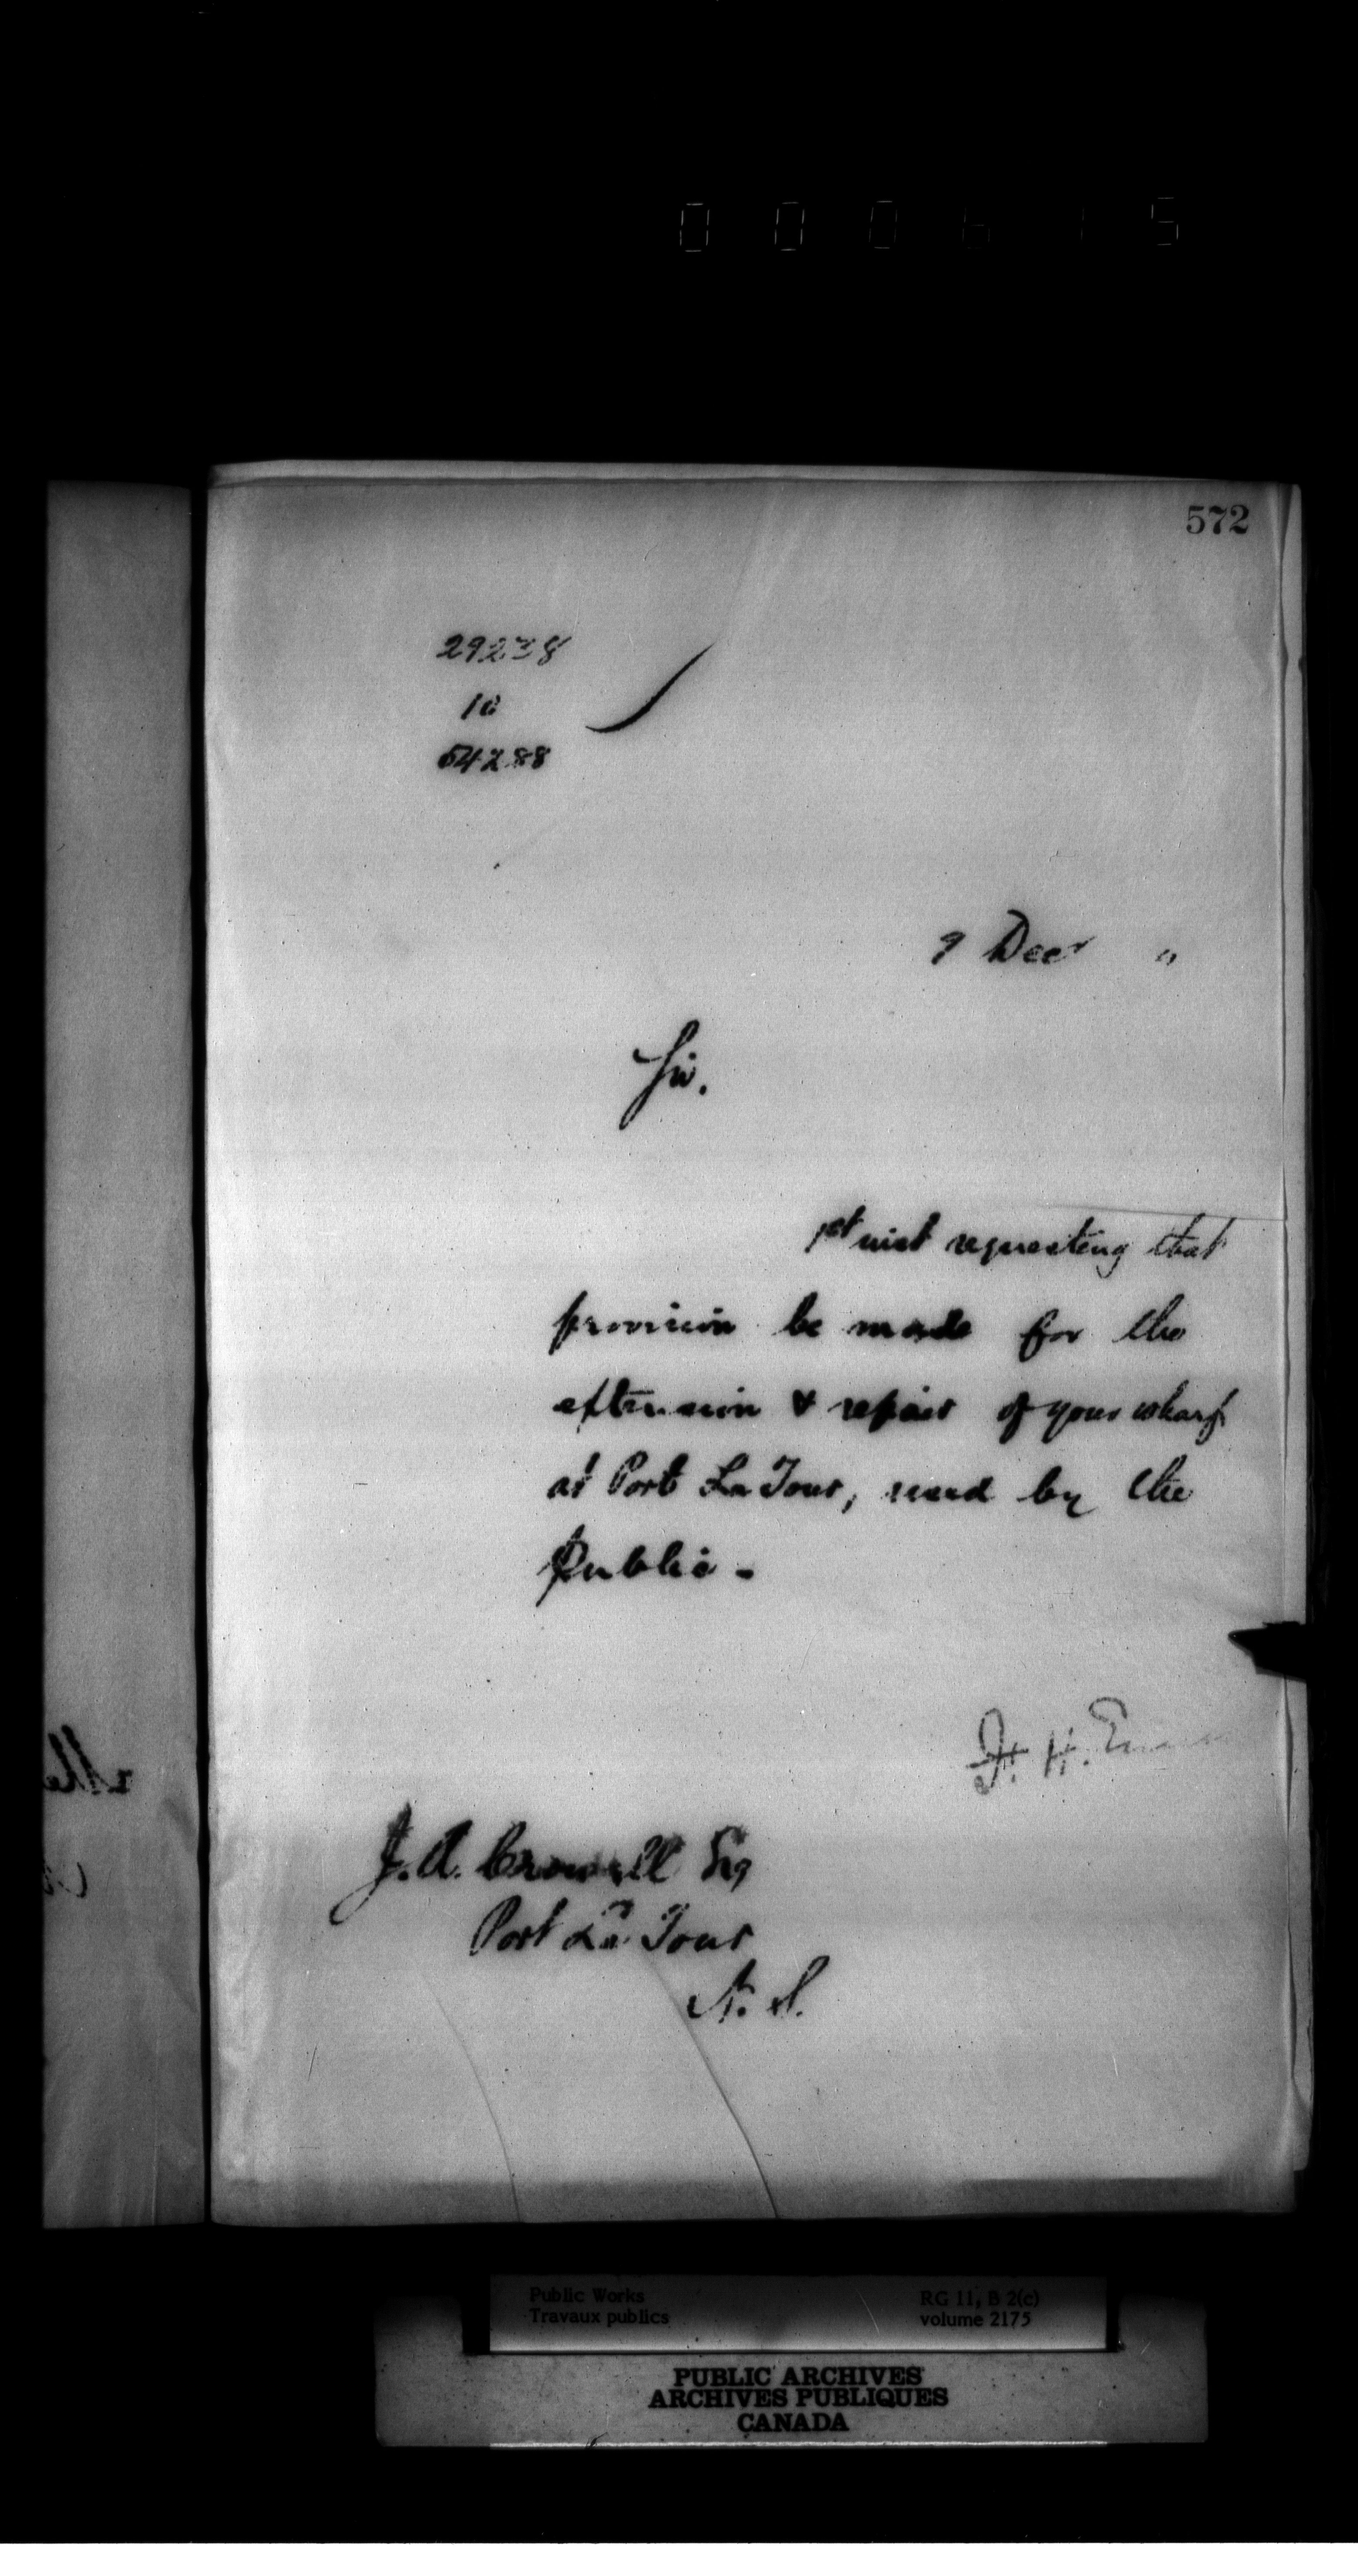 000615
572
29238
10
54288
9 Decr "
Sir.
1st inst requesting that
provision be made for the
extension & repair of your wharf
at Port La Tour, used by the
public -
F. H.
J. A. Crowell Esq
Port La Tour
N. S.
Public Works RG 11, B 2(c)
Travaux publics volume 2175
PUBLIC ARCHIVES
ARCHIVES PUBLIQUES
CANADA